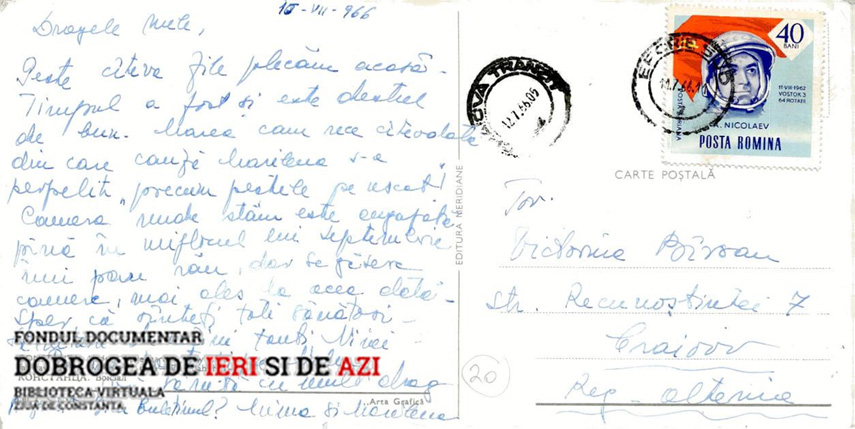 10-VII-966
Dragele mele,
Peste câteva zile plecăm acasă.
Timpul a fost și este destul
de bun. Marea cam rece câteodată
din care cauză Marilena s-a
perpelit "precum peștele pe uscat"!
Camera unde stăm este angajată
până în mijlocul lui septembrie
îmi pare rău, dar se găsesc
camere, mai ales la acea dată.
Sper că sunteți toți sănătoși.
tanti Ninei
cu mult drag
Buletinul? Mima și Marilena
FONDUL DOCUMENTAR
DOBROGEA DE IERI SI DE AZI
КОНСТАНЦА. Вокзал
BIBLIOTECA VIRTUALA
ZIUA DE CONSTANTA
„Arta Grafică"
EDITURA MERIDIANE
TRANZIT
12.7.66.05
EFORIE
40
BANI
11-VIII-1962
VOSTOK 3
64 ROTATII
A. NICOLAEV
POSTA ROMINA
CARTE POȘTALĂ
Tov.
Victorina Bîrsan
str. Recunoștinței 7
Craiova
Reg. Oltenia
20